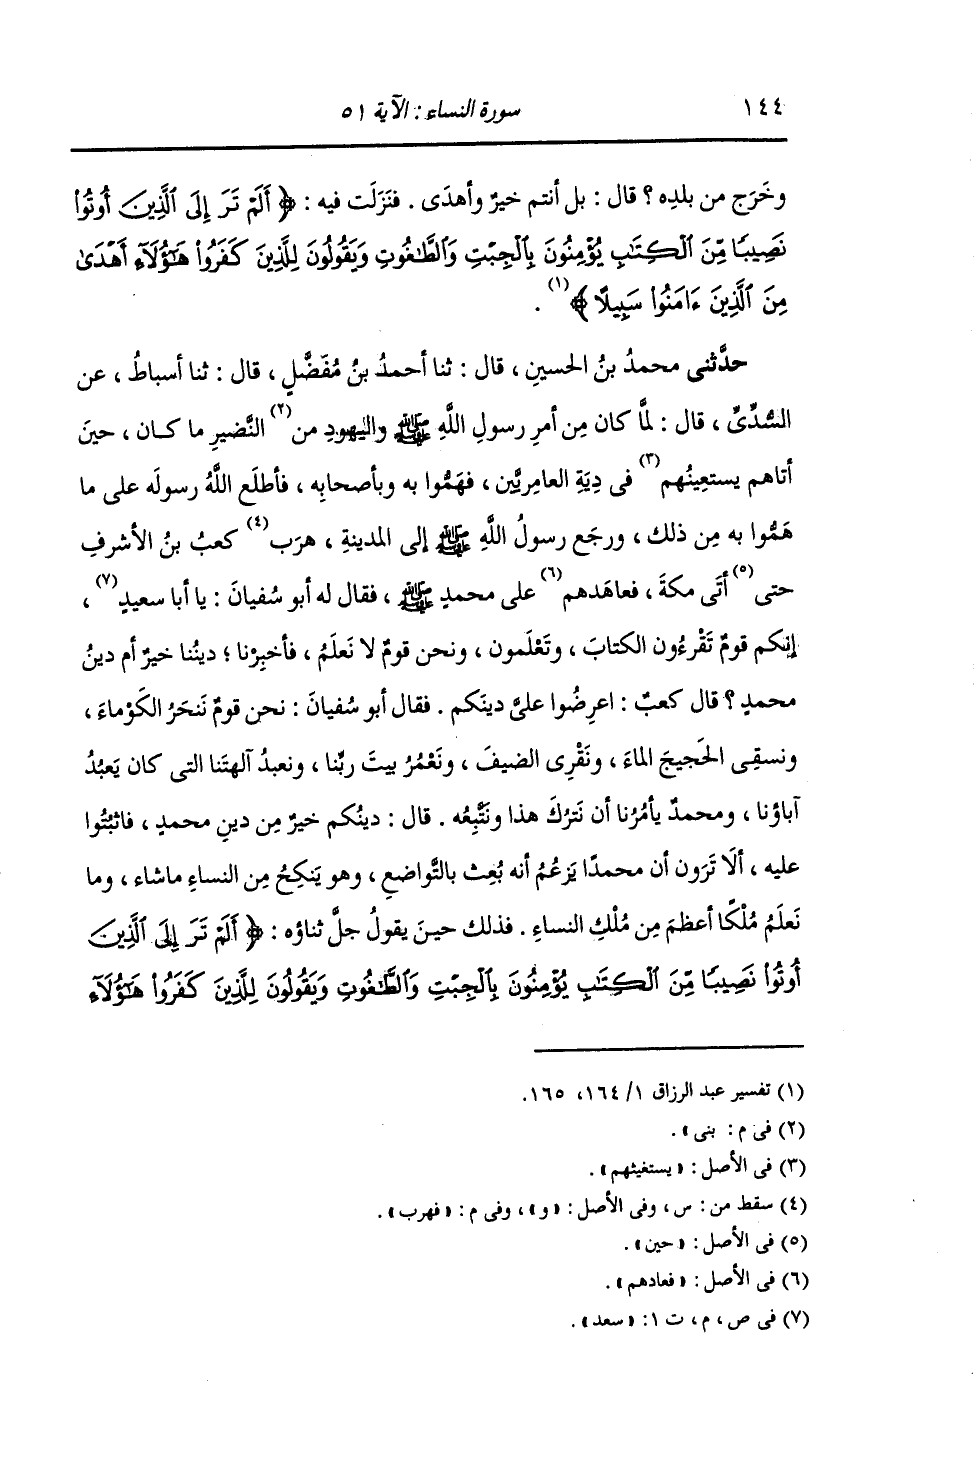 ١٤٤ سورة النساء : الآية ٥١
وخَرَج من بلدِه ؟ قال : بل أنتم خيرٌ وأهدَى . فنَزَلَت فيه : ﴿ أَلَمْ تَرَ إِلَى ٱلَّذِينَ أُوتُوا۟
نَصِيبًا مِّنَ ٱلْكِتَٰبِ يُؤْمِنُونَ بِٱلْجِبْتِ وَٱلطَّٰغُوتِ وَيَقُولُونَ لِلَّذِينَ كَفَرُوا۟ هَٰٓؤُلَآءِ أَهْدَىٰ
مِنَ ٱلَّذِينَ ءَامَنُوا۟ سَبِيلًا ﴾(١) .
حدَّثنى محمدُ بنُ الحسينِ ، قال : ثنا أحمدُ بنُ مُفَضَّلٍ ، قال : ثنا أسباطُ ، عن
السُّدِّىِّ ، قال : لمَّا كان مِن أمرِ رسولِ اللَّهِ ﷺ واليهودِ من(٢) النَّضيرِ ما كـان ، حينَ
أتاهم يستعِينُهم(٣) فى دِيَةِ العامرِيَّين ، فهَمُّوا به وبأصحابِه ، فأطلَع اللَّهُ رسولَه على ما
هَمُّوا به مِن ذلك ، ورجَع رسولُ اللَّهِ ﷺ إلى المدينةِ ، هرَب(٤) كعبُ بنُ الأشرفِ
حتى(٥) أتَى مكةَ ، فعاهَدهم(٦) على محمدٍ ﷺ ، فقال له أبو سُفيانَ : يا أبا سعيدٍ(٧) ،
إنكم قومٌ تَقْرءُون الكتابَ ، وتَعْلَمون ، ونحن قومٌ لا نَعلَمُ ، فأخبِرْنا ؛ دينُنا خيرٌ أم دينُ
محمدٍ ؟ قال كعبٌ : اعرِضُوا علىَّ دينَكم . فقال أبو سُفيانَ : نحن قومٌ نَنحَرُ الكَوْماءَ ،
ونسقِى الحَجيجَ الماءَ ، ونَقْرِى الضيفَ ، ونَعْمُرُ بيتَ ربِّنا ، ونعبدُ آلهتَنا التى كان يَعبُدُ
آباؤنا ، ومحمدٌ يأمُرُنا أن نَترُكَ هذا ونَتَّبِعُه . قال : دينُكم خيرٌ مِن دينِ محمدٍ ، فاثبُتُوا
عليه ، ألَا تَرَون أن محمدًا يَزعُمُ أنه بُعِث بالتَّواضعِ ، وهو يَنكِحُ مِن النساءِ ماشاء ، وما
نَعلَمُ مُلْكًا أعظمَ مِن مُلْكِ النساءِ . فذلك حينَ يقولُ جلَّ ثناؤه : ﴿ أَلَمْ تَرَ إِلَى ٱلَّذِينَ
أُوتُوا۟ نَصِيبًا مِّنَ ٱلْكِتَٰبِ يُؤْمِنُونَ بِٱلْجِبْتِ وَٱلطَّٰغُوتِ وَيَقُولُونَ لِلَّذِينَ كَفَرُوا۟ هَٰٓؤُلَآءِ
(١) تفسير عبد الرزاق ١/ ١٦٤، ١٦٥.
(٢) فى م : بنى » .
(٣) فى الأصل : « يستغيثهم » .
(٤) سقط من : س ، وفى الأصل : « و » ، وفى م : « فهرب » .
(٥) فى الأصل : « حين » .
(٦) فى الأصل : « فعادهم » .
(٧) فى ص ، م ، ت ١ : « سعد » .